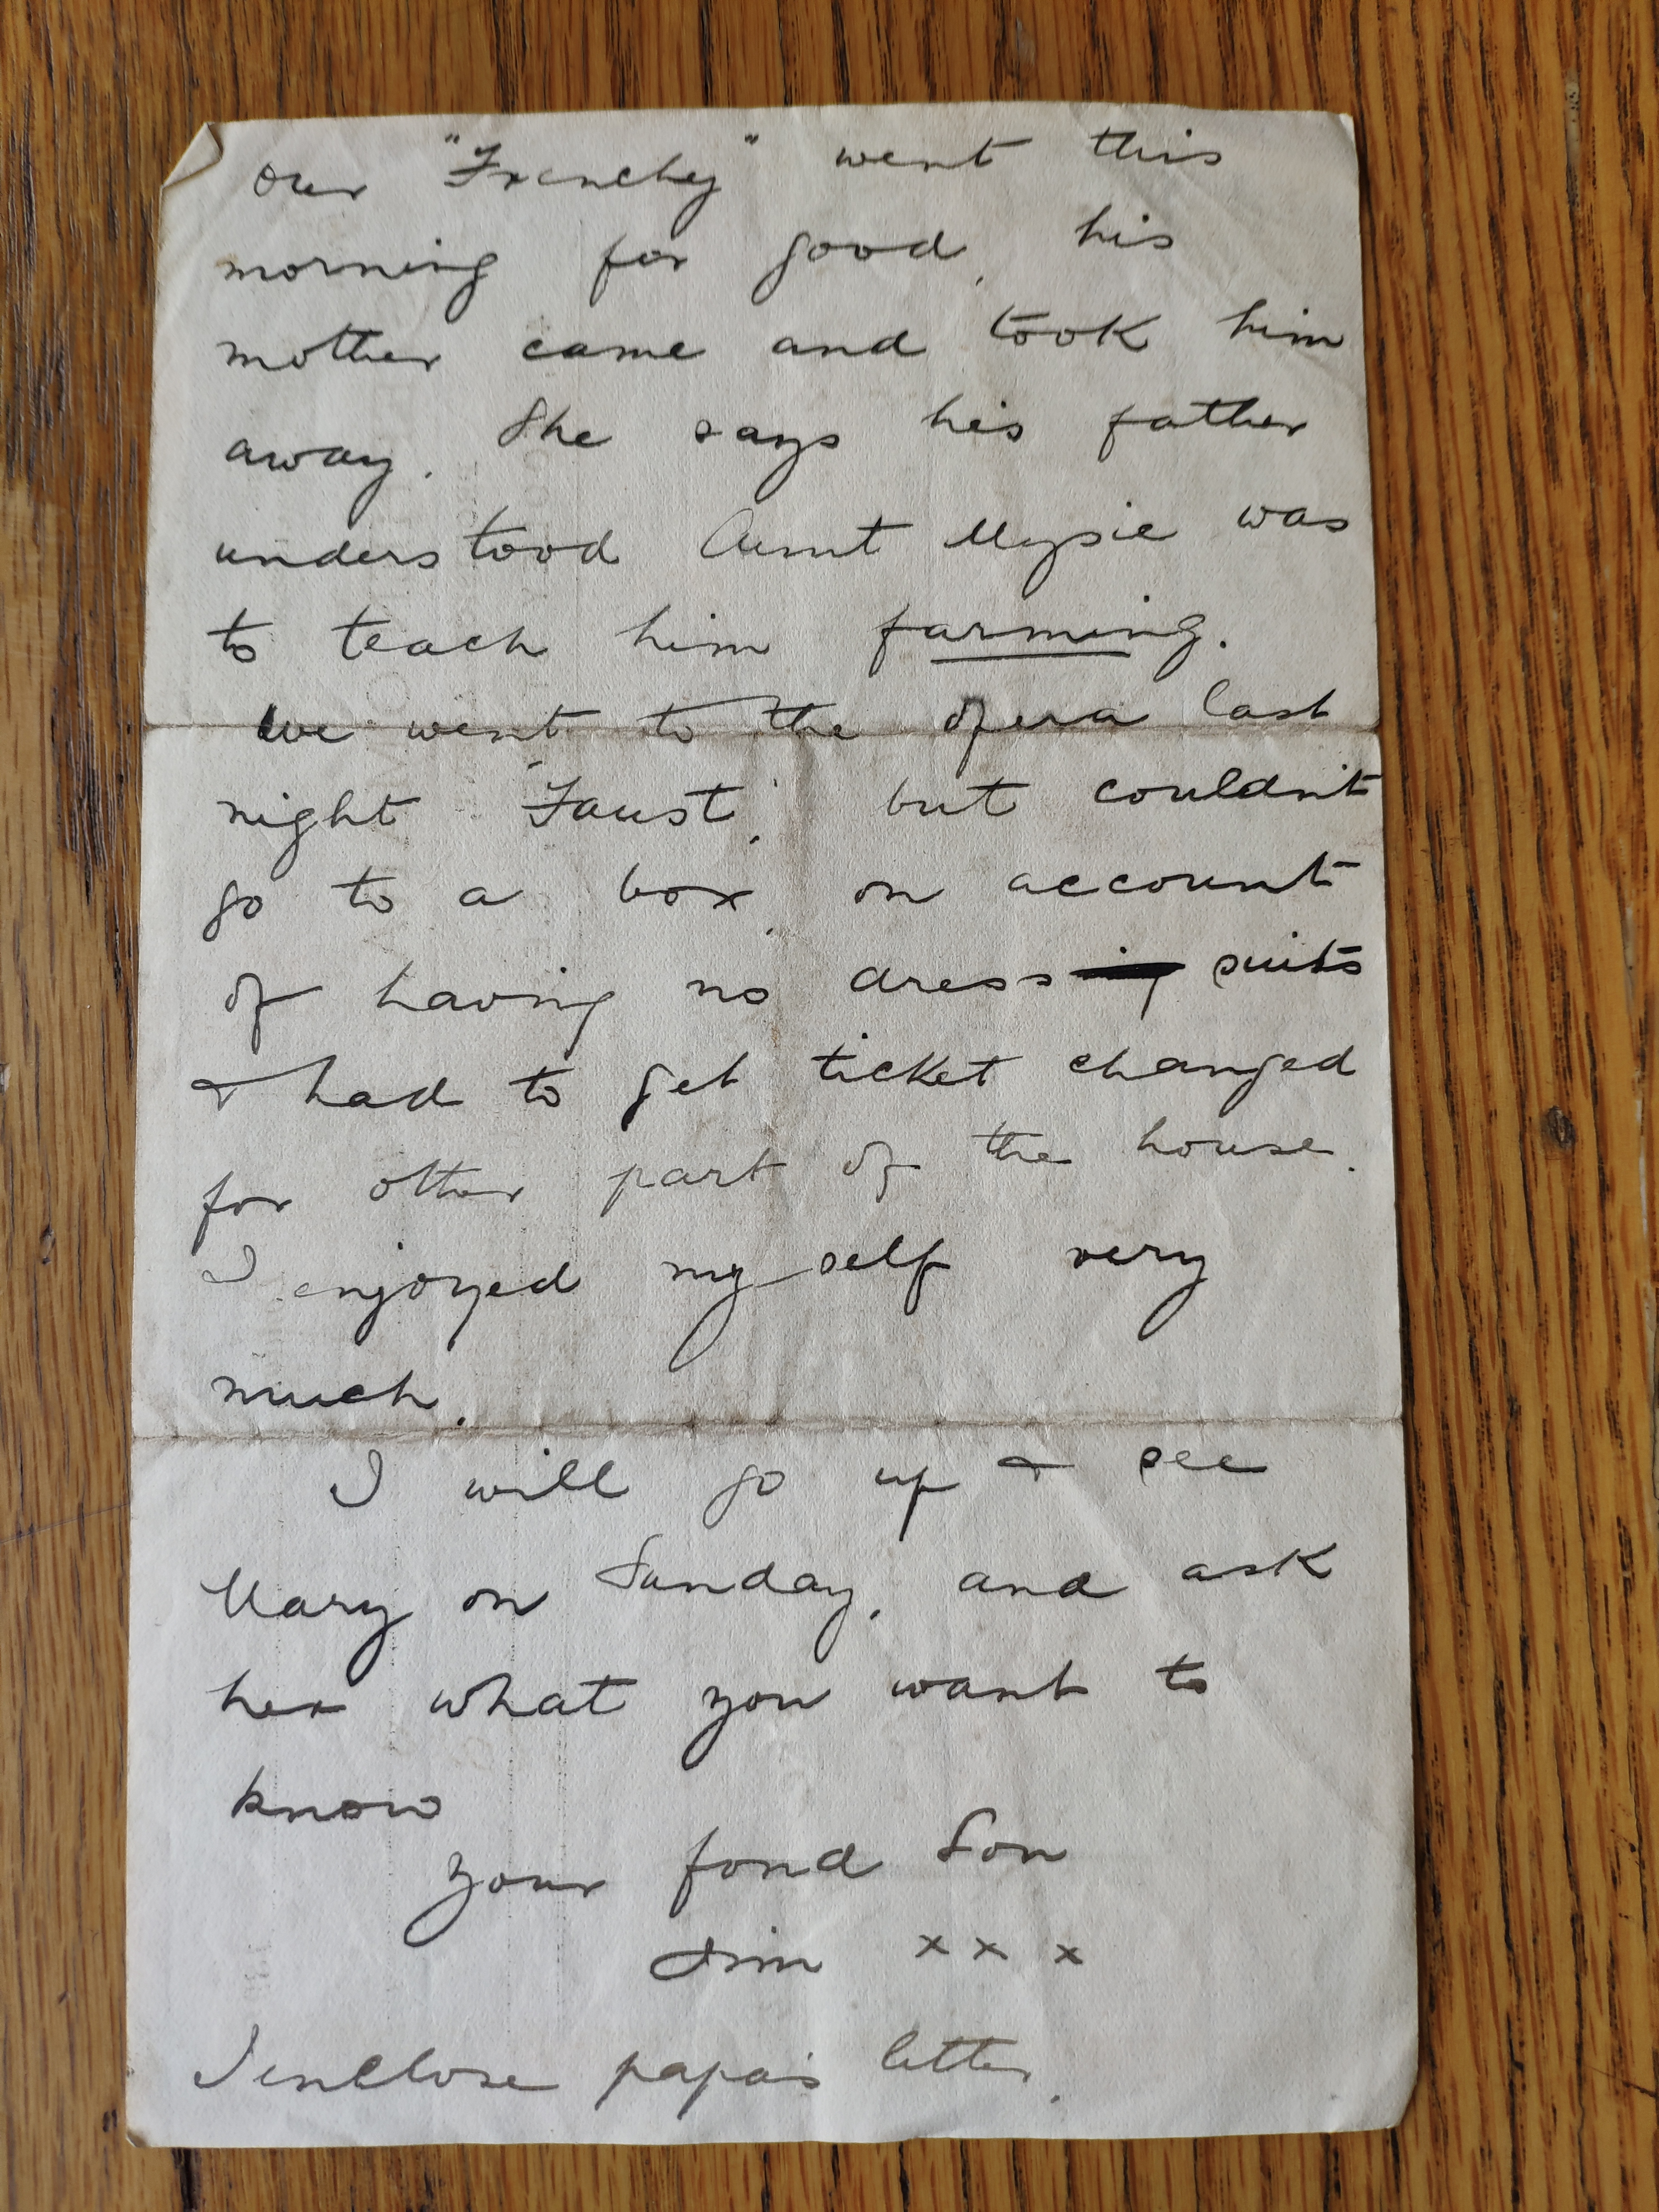 our "Frenchy" went this
morning for good, his
mother came and took him
away. She says his father
understood Aunt Mysie was
to teach him farming.
We went to the opera last
night "Faust", but couldn't
go to a box, on account
of having no dress suits
& had to get ticket changed
for other part of the house.
I enjoyed my self very
much.
I will go up & see
Mary on Sunday, and ask
her what you want to
know
your fond Son
Jim x x x
I enclose papa's letter.